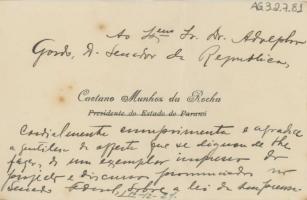 AG 3.2.7.81
Ao Exmo Sr. Dr. Adolpho
Gordo, D. Senador da Republica,
Caetano Munhoz da Rocha
Presidente do Estado do Paraná
Cordialmente cumprimenta e agradece
a gentileza da offerta que se dignou de lhe
fazer, de um exemplar impresso do
projecto e discurso pronunciado no
Senado Federal, sobre a lei de imprensa